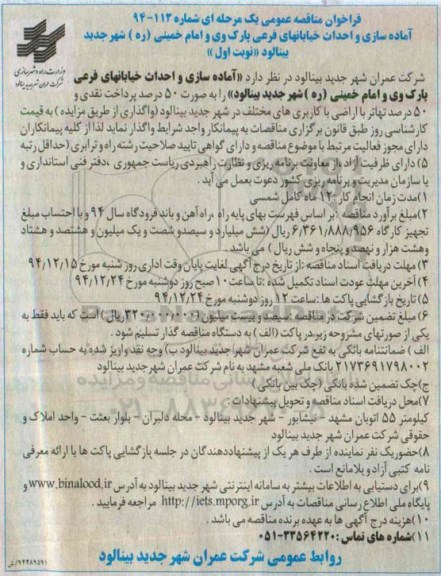 فراخوان مناقصه عمومی یک مرحله ای شماره ۱۱۳-۹۴
آماده سازی و احداث خیابانهای فرعی پارک وی و امام خمینی (ره) شهر جدید
بینالود «نوبت اول»
وزارت راه و شهرسازی
شرکت عمران شهر جدید بینالود
شرکت عمران شهر جدید بینالود در نظر دارد «آماده سازی و احداث خیابانهای فرعی
پارک وی و امام خمینی (ره) شهر جدید بینالود» را به صورت ۵۰ درصد پرداخت نقدی و
۵۰ درصد تهاتر با اراضی با کاربری های مختلف در شهر جدید بینالود (واگذاری از طریق مزایده) به قیمت
کارشناسی روز طبق قانون برگزاری مناقصات به پیمانکار واجد شرایط واگذار نماید لذا از کلیه پیمانکاران
دارای مجوز فعالیت مرتبط با موضوع مناقصه و دارای گواهی تایید صلاحیت رشته راه و ترابری (حداقل رتبه
۵) دارای ظرفیت آزاد ،از معاونت برنامه ریزی و نظارت راهبردی ریاست جمهوری ،دفتر فنی استانداری و
یا سازمان مدیریت و برنامه ریزی کشور دعوت بعمل می آید .
۱)مدت زمان انجام کار :۱۲ ماه کامل شمسی
۲)مبلغ برآورد مناقصه :بر اساس فهرست بهای پایه راه ،راه آهن و باند فرودگاه سال ۹۴ و با احتساب مبلغ
تجهیز کارگاه ۶/۳۶۱/۸۸۸/۹۵۶ ریال (شش میلیارد و سیصد و شصت و یک میلیون و هشتصد و هشتاد
وهشت هزار و نهصد و پنجاه و شش ریال ) می باشد .
۳) مهلت دریافت اسناد مناقصه :از تاریخ درج آگهی لغایت پایان وقت اداری روز شنبه مورخ ۹۴/۱۲/۱۵
۴) آخرین مهلت عودت اسناد تکمیل شده :تا ساعت ۱۰ صبح روز دوشنبه مورخ ۹۴/۱۲/۲۴
۵) تاریخ بازگشایی پاکت ها :ساعت ۱۲ روز دوشنبه مورخ ۹۴/۱۲/۲۴
۶) مبلغ تضمین شرکت در مناقصه سیصد و بیست میلیون (۳۲۰/۰۰۰/۰۰۰ ریال) است که باید فقط به
یکی از صورتهای مشروحه زیر،در پاکت (الف ) به دستگاه مناقصه گذار تسلیم شود .
الف ) ضمانتنامه بانکی به نفع شرکت عمران شهر جدید بینالود ب) وجه نقد واریز شده به حساب شماره
۲۱۷۳۶۹۱۷۹۸۰۰۲ بانک ملی شعبه مشهد به نام شرکت عمران شهر جدید بینالود
ج)چک تضمین شده بانکی (چک بین بانکی )
۷)محل دریافت اسناد مناقصه و تحویل پیشنهادات :
کیلومتر ۵۵ اتوبان مشهد – نیشابور – شهر جدید بینالود – محله دلبران – بلوار بعثت – واحد املاک و
حقوقی شرکت عمران شهر جدید بینالود
۸)حضور یک نفر نماینده از طرف هر یک از پیشنهاددهندگان در جلسه بازگشایی پاکت ها با ارائه معرفی
نامه کتبی آزاد و بلامانع است .
۹)برای دستیابی به اطلاعات بیشتر به سامانه اینترنتی شهر جدید بینالود به آدرس www.binalood.ir و
پایگاه ملی اطلاع رسانی مناقصات به آدرس http://iets.mporg.ir مراجعه فرمایید .
۱۰)هزینه درج آگهی ها به عهده برنده مناقصه می باشد .
۱۱)شماره های تماس :۳۳۵۶۴۲۲۰-۰۵۱
روابط عمومی شرکت عمران شهر جدید بینالود